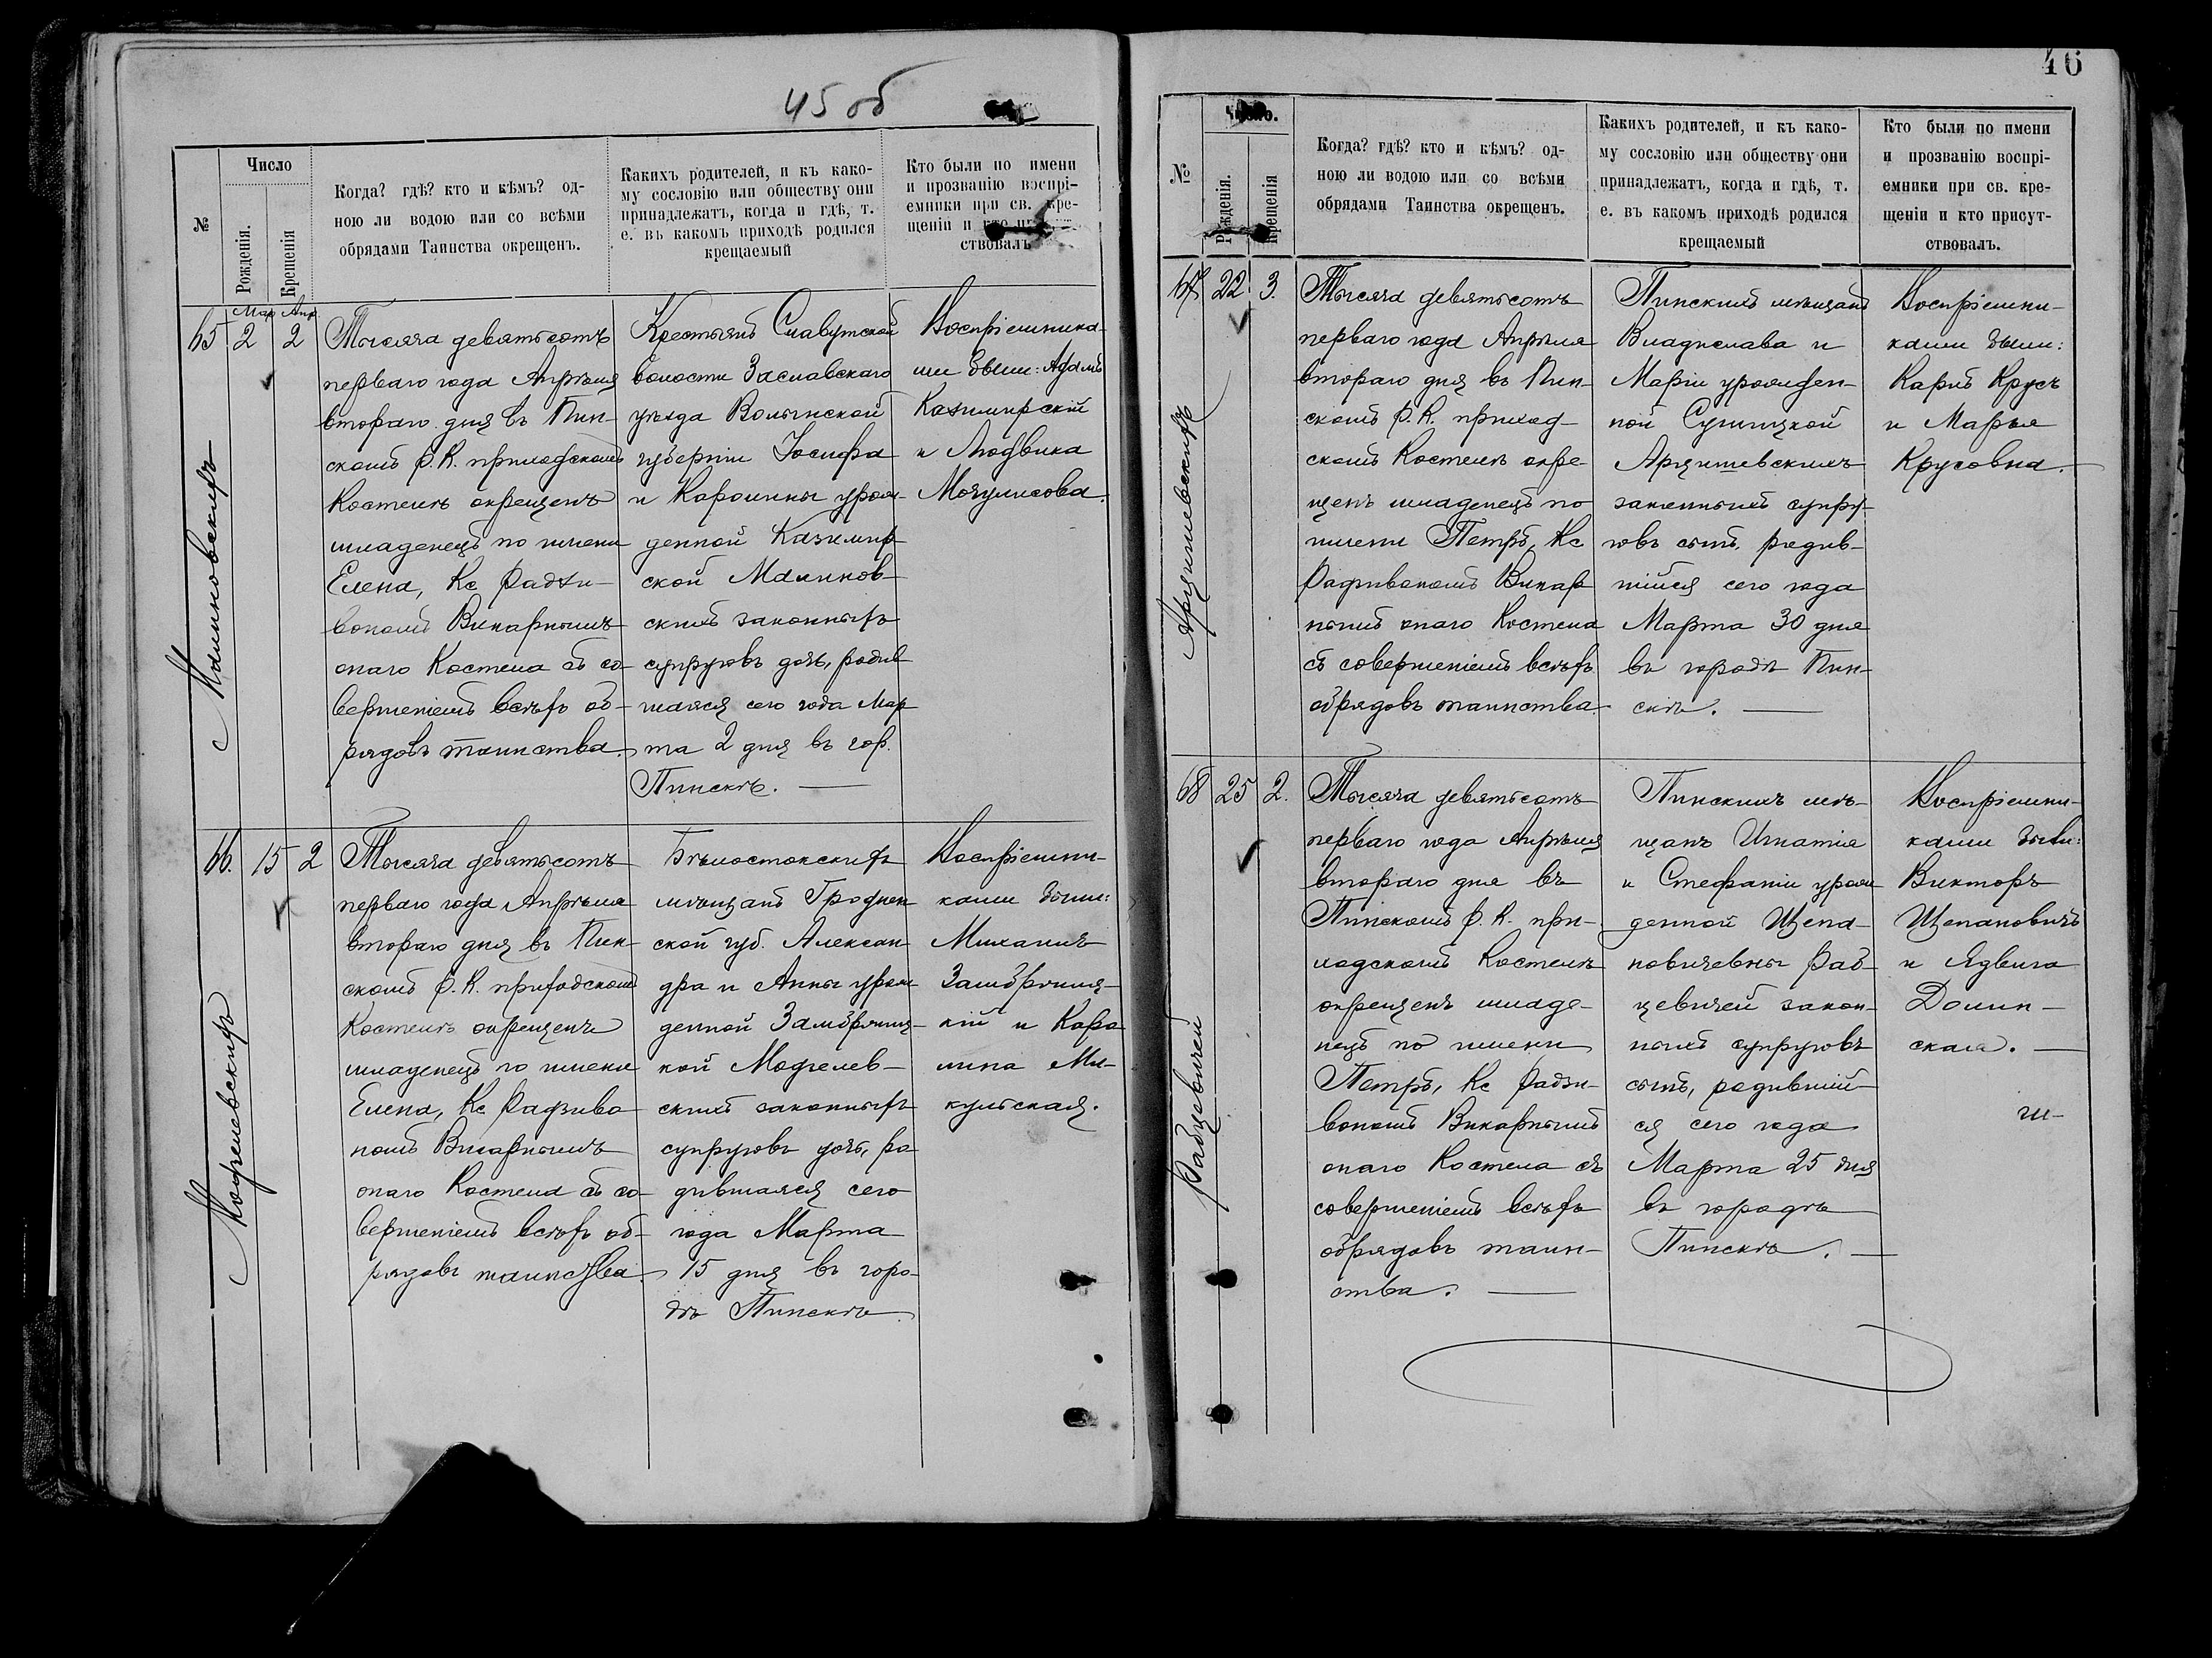 45 об
№
Число
Рожденія.
Крещенія
Когда? гдѣ? кто и кѣмъ? од-
ною ли водою или со всѣми
обрядами Таинства окрещенъ.
Какихъ родителей, и къ како-
му сословію или обществу они
принадлежатъ, когда и гдѣ, т.
е. въ какомъ приходѣ родился
крещаемый
Кто были по имени
и прозванію воспрі-
емники при св. кре-
щеніи и кто
ствовалъ
Мар. Апр.
65 2 2
Малиновскихъ
Тысяча девятьсотъ
перваго года Апрѣля
втораго дня въ Пин-
скомъ Р. К. приходскомъ
Костелѣ окрещенъ
младенецъ по имени
Елена, Кс. Радзи-
вономъ Викарнымъ
онаго Костела съ со-
вершеніемъ всѣхъ об-
рядовъ таинства.
Крестьянъ Славутской
волости Заславскаго
уѣзда Волынской
губерніи Іосифа
и Каролины урож-
денной Казимир-
ской Малинов-
скихъ законныхъ
супруговъ дочь, родив-
шаяся сего года Мар-
та 2 дня въ гор.
Пинскѣ.
Воспріемника-
ми были: Адамъ
Казимирскій
и Людвика
66. 15 2
Модзелевскихъ
Тысяча девятьсотъ
перваго года Апрѣля
втораго дня въ Пин-
скомъ Р. К. приходскомъ
Костелѣ окрещенъ
младенецъ по имени
Елена, Кс. Радзиво-
номъ Викарнымъ
онаго Костела съ со-
вершеніемъ всѣхъ об-
рядовъ таинства
Бѣлостокскихъ
мѣщанъ Гроднен-
ской губ. Алексан-
дра и Анны урож-
денной Замбржиц-
кой Модзелев-
скихъ законныхъ
супруговъ дочь, ро-
дившаяся сего
года Марта
15 дня въ горо-
дѣ Пинскѣ.
Воспріемни-
ками были:
Михаилъ
Замбржиц-
кій и Каро-
лина Ми-
кульская.
46
№
Число.
Рожденія.
Крещенія
Когда? гдѣ? кто и кѣмъ? од-
ною ли водою или со всѣми
обрядами Таинства окрещенъ.
Какихъ родителей, и къ како-
му сословію или обществу они
принадлежатъ, когда и гдѣ, т.
е. въ какомъ приходѣ родился
крещаемый
Кто были по имени
и прозванію воспрі-
емники при св. кре-
щеніи и кто присут-
ствовалъ.
67 22 3.
Арцишевскихъ
Тысяча девятьсотъ
перваго года Апрѣля
втораго дня въ Пин-
скомъ Р. К. приход-
скомъ Костелѣ окре-
щенъ младенецъ по
имени Петръ, Кс.
Радзивономъ Викар-
нымъ онаго Костела
съ совершеніемъ всѣхъ
обрядовъ таинства.
Пинскихъ мѣщанъ
Владислава и
Маріи урожден-
ной
Арцишевскихъ
законныхъ супру-
говъ сынъ, родив-
шійся сего года
Марта 30 дня
въ городѣ Пин-
скѣ.
Воспріемни-
ками были:
Карлъ Крусъ
и Марья
Крусовна.
68 25 2.
Рабцевичей
Тысяча девятьсотъ
перваго года Апрѣля
втораго дня въ
Пинскомъ Р. К. при-
ходскомъ Костелѣ
окрещенъ младе-
нецъ по имени
Петръ, Кс. Радзи-
вономъ Викарнымъ
онаго Костела съ
совершеніемъ всѣхъ
обрядовъ таин-
ства.
Пинскихъ мѣ-
щанъ Игнатія
и Стефаніи урож-
денной Щепа-
новичевны Раб-
цевичей закон-
ныхъ супруговъ
сынъ, родивший-
ся сего года
Марта 25 дня
въ городѣ
Пинскѣ.
Воспріемни-
ками были:
Викторъ
Щепановичъ
и Ядвига
Долин-
ская.